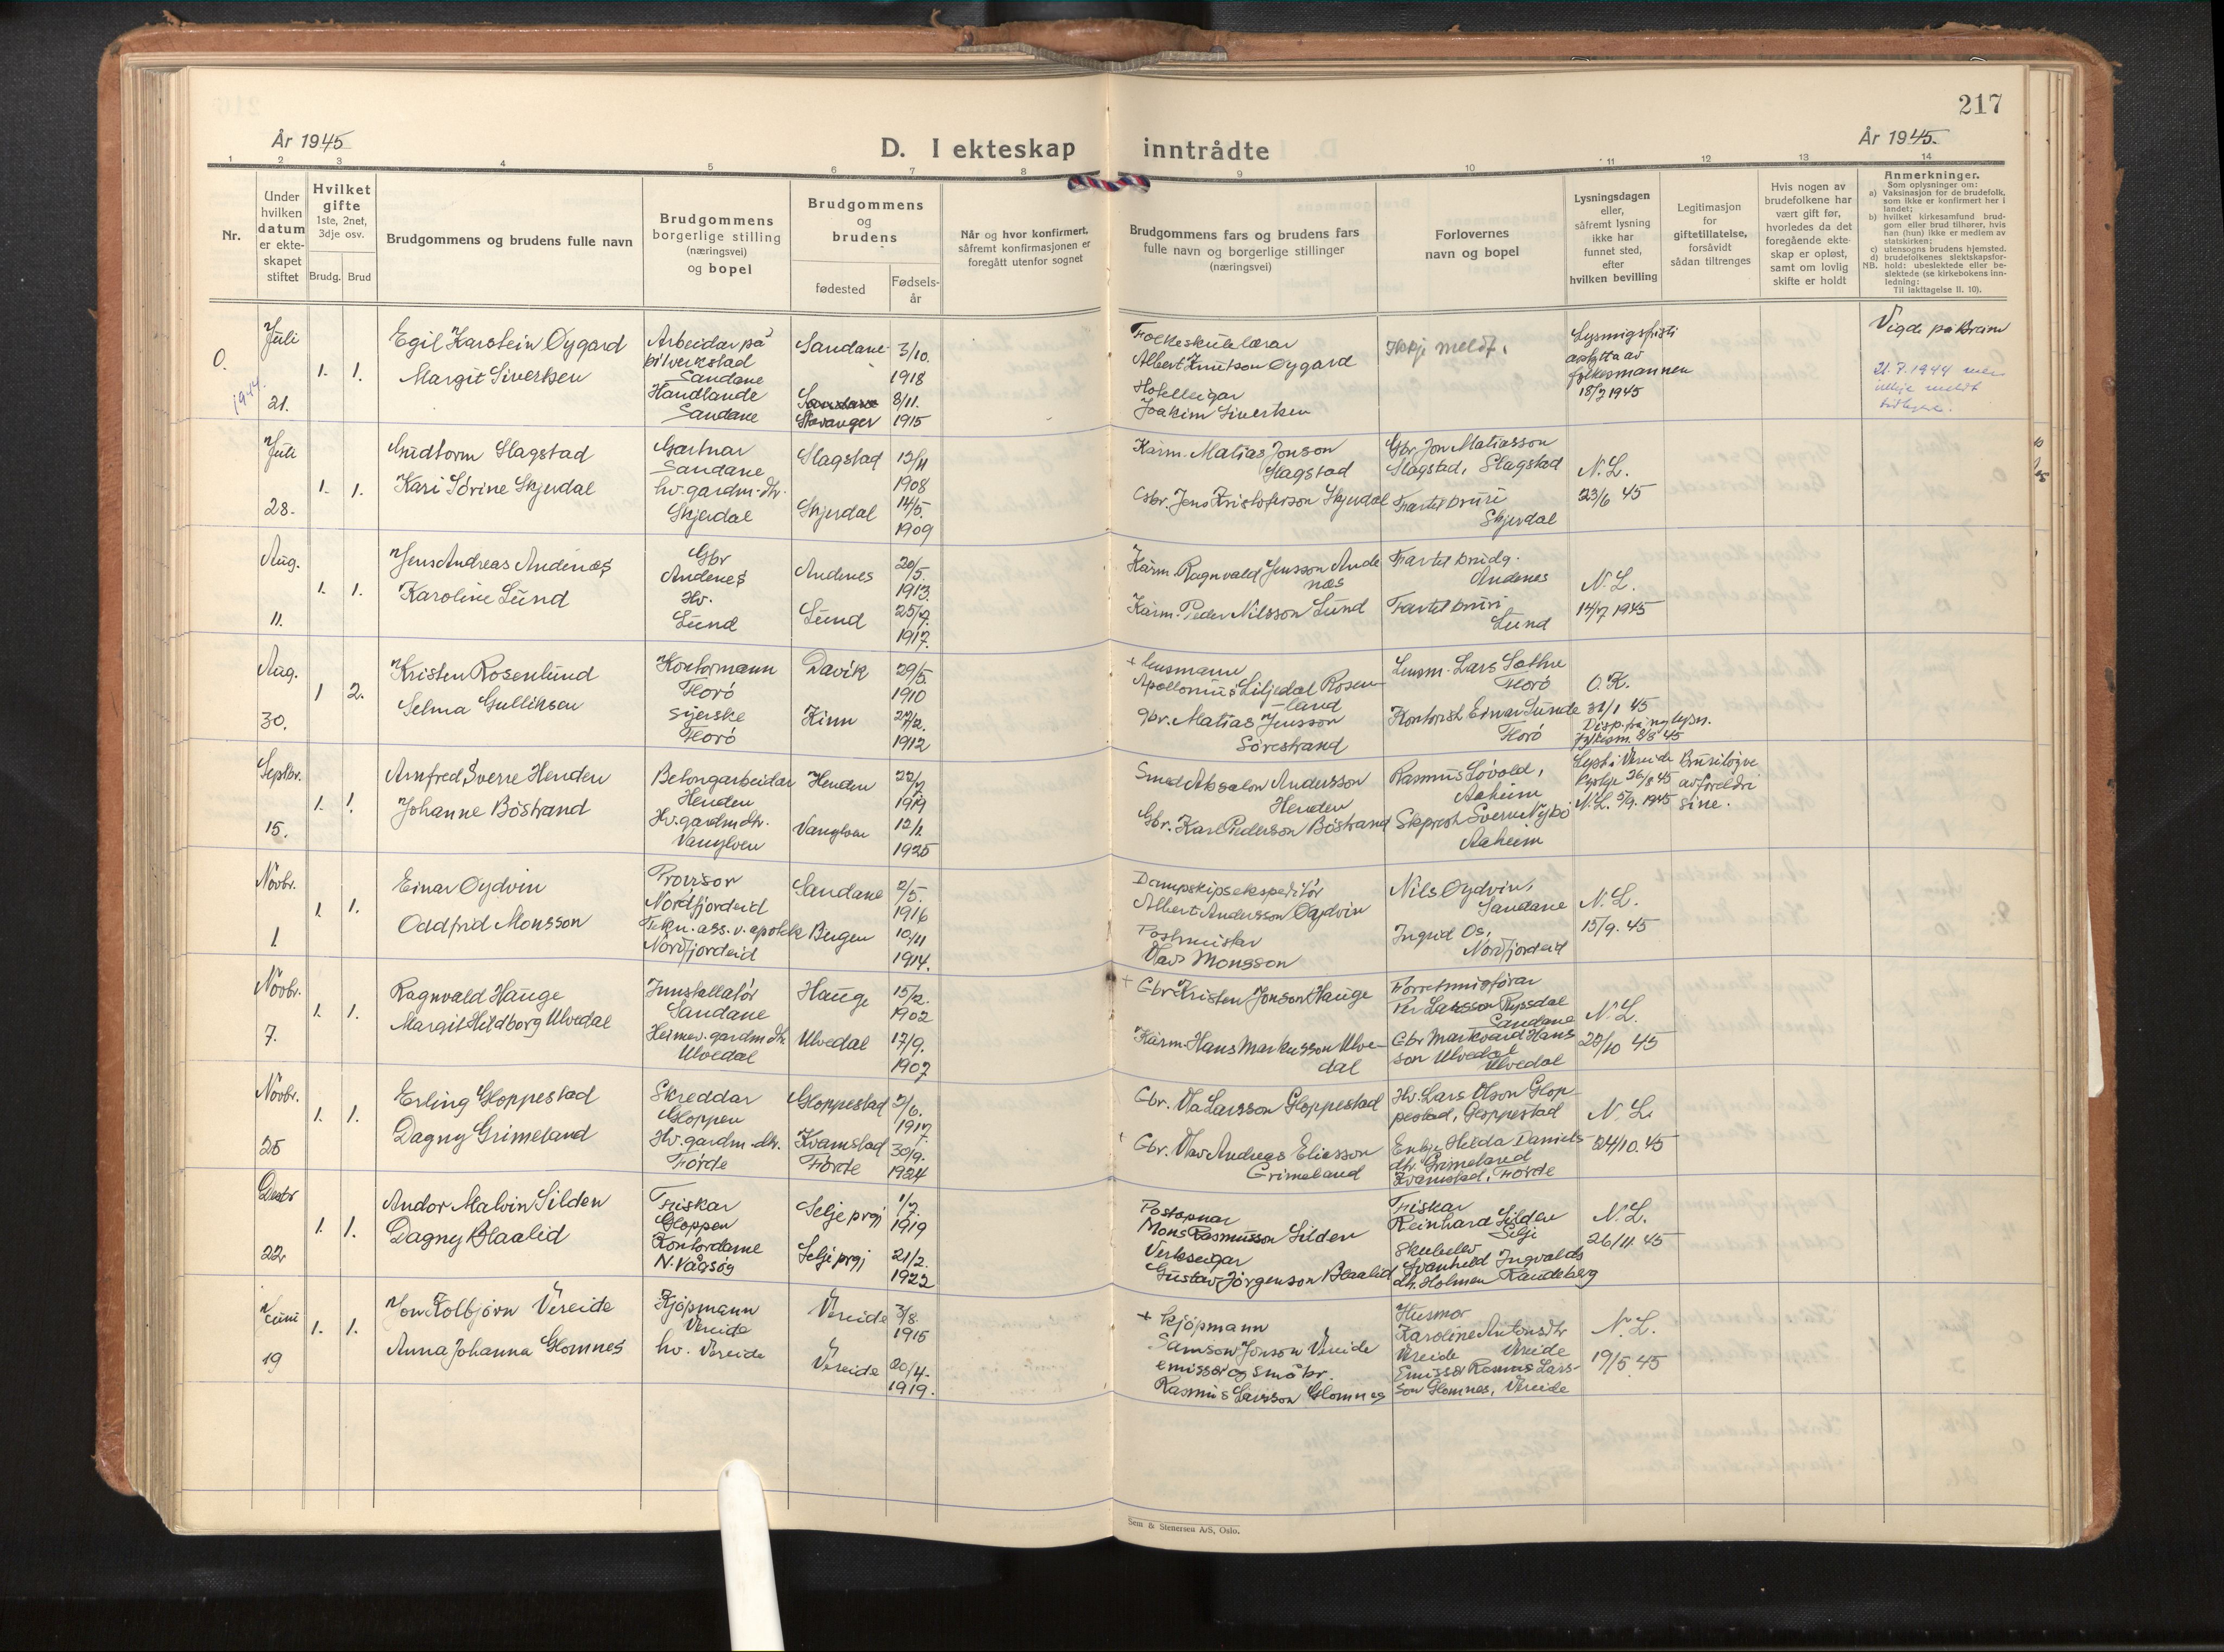 217
År 1945
År 1945.
D. I ekteskap inntrådte
1 2 3 4 5 6 7 8 9 10 11 12 13 14
Nr.
Under
hvilken
datum
er ekte-
skapet
stiftet
Hvilket
gifte
1ste, 2net,
3dje osv.
Brudg. Brud
Brudgommens og brudens fulle navn
Brudgommens
borgerlige stilling
(næringsvei)
og bopel
Brudgommens
og
brudens
fødested
Fødsels-
år
Når og hvor konfirmert,
såfremt konfirmasjonen er
foregått utenfor sognet
Brudgommens fars og brudens fars
fulle navn og borgerlige stillinger
(næringsvei)
Forlovernes
navn og bopel
Lysningsdagen
eller,
såfremt lysning
ikke har
funnet sted,
efter
hvilken bevilling
Legitimasjon
for
giftetillatelse,
forsåvidt
sådan tiltrenges
Hvis nogen av
brudefolkene har
vært gift før,
hvorledes da det
foregående ekte-
skap er opløst,
samt om lovlig
skifte er holdt
Anmerkninger.
Som oplysninger om:
a) Vaksinasjon for de brudefolk,
som ikke er konfirmert her i
landet;
b) hvilket kirkesamfund brud-
gom eller brud tilhører, hvis
han (hun) ikke er medlem av
statskirken;
c) utensogns brudens hjemsted.
d) brudefolkenes slektskapsfor-
NB. hold: ubeslektede eller be-
slektede (se kirkebokens inn-
ledning;
Til iakttagelse II. 10).
0.
1944.
Juli
21.
1. 1.
Egil Karstein Oygard
Margit Sivertsen
Arbeidar på
bilverkstad
Sandane
Handlande
Sandane
Sandane
Sandane
Stavanger
3/10.
1918
8/11.
1915
Folkeskulelærar
Albert Knutson Oygard
Hotelleigar
Joakim Sivertsen
Ikkje meldt.
Lysingsfristi
avstytta av
fylkesmannen
18/7 1945
Vigde på Breim
21.7.1944 men
ikkje meldt
tidlegare.
Juli
28.
1. 1.
Gudtorm Slagstad
Kari Sörine Skjerdal
Gartnar
Sandane
hv. gardm.dtr.
Skjerdal
Slagstad
Skjerdal
12/11
1908
14/5.
1909
Kårm. Matias Jonson
Slagstad
Gbr. Jens Kristoferson Skjerdal
Gbr. Jon Matiasson
Slagstad, Slagstad
Far til bruri
Skjerdal
N.L.
23/6 45
Aug.
11.
1. 1.
Jens Andreas Andenes
Karoline Lund
Gbr
Andenes
Hv.
Lund
Andenes
Lund
20/5.
1913.
25/7.
1917.
Kårm. Ragnvald Jensson Ande
nes
Kårm. Peder Nilsson Lund
Far til brudg.
Andenes
Far til bruri
Lund
N.L.
14/7 1945
Aug.
30.
1 2.
Kristen Rosenlund
Selma Gulliksen
Kontormann
Florö
Syerske
Florö
Davik
Kinn
29/5.
1910
27/2.
1912
+ Lensmann
Apollonius Liljedal Rosen-
land
gbr. Matias Jensson
Sörestrand
Lensm. Lars Sæthre
Florö
Kontorist Einar Sunde
Florö
O.K.
31/1 45
Disp. frå ny lysn.
fylkesm. 8/8 45
Septbr.
15.
1. 1.
Arnfred Sverre Henden
Johanne Böstrand
Betongarbeidar
Henden
Hv. gardm.dtr.
Vanylven
Henden
Vanylven
27/7
1919
12/1
1925
Smed Absalon Andersson
Henden
Gbr. Karl Pederson Böstrand
Rasmus Lövold,
Aaheim
Skprest Sverre Nybö
Aaheim
Lyst i Vereide
kyrkje 26/8 45
N.L. 5/9. 1945
Bruriløyve
av foreldri
sine.
Novbr.
1.
1. 1.
Einar Oydvin
Oddfrid Monsson
Provisor
Nordfjordeid
Tekn. ass. v. apotek
Nordfjordeid
Sandane
Bergen
2/5.
1916
10/11
1914.
Dampskipsekspeditör
Albert Andersson Oydvin
Postmeister
Olav Monsson
Nils Oydvin,
Sandane
Ingrid Os,
Nordfjordeid
N.L.
15/9. 45
Novbr.
7.
1. 1.
Ragnvald Hauge
Margit Hildborg Ulvedal
Innstallatör
Sandane
Heimev. gardm.dtr
Ulvedal
Hauge
Ulvedal
15/2.
1902
17/9.
1907
+ Gbr Kristen Jonson Hauge
Kårm. Hans Markusson Ulve-
dal
Forretningsförar
Per Larsson Ryssdal
Sandane
Gbr Markvard Hans
son Ulvedal
Ulvedal
N.L.
27/10 45
Novbr.
25
1. 1.
Erling Gloppestad
Dagny Grimeland
Skreddar
Gloppen
Hv. gardm.dtr.
Förde
Gloppestad
Kvamstad
Förde
2/6.
1917.
30/9.
1924
Gbr. Ola Larsson Gloppestad
+ Gbr. Olav Andreas Eliasson
Grimeland
Hv. Lars Olson Glop-
pestad, Gloppestad
Enkje Hilda Daniels-
dtr. Grimeland
Kvamstad, Förde
N.L.
24/10. 45
Desbr
22
1. 1.
Andor Malvin Silden
Dagny Blaalid
Fiskar
Gloppen
Kontordame
N. Vågsöy
Selje prgj
Selje prgj
1/7.
1919
21/2.
1922
Postopnar
Mons Rasmusson Silden
Verkseigar
Gustav Jörgenson Blaalid
Fiskar
Reinhard Silden
Selje
Skulelev
Svanhild Ingvalds
dtr. Holmen Raudeberg
N.L.
26/11. 45
Juni
19
1. 1.
Jon Kolbjörn Vereide
Anna Johanna Glomnes
Kjöpmann
Vereide
hv. Vereide
Vereide
Vereide
3/8.
1915
20/4.
1919.
+ Kjöpmann
Samson Jonson Vereide
emissær og småbr.
Rasmus Larsson Glomnes
Husmor
Karoline Antonsdtr
Vereide Vereide
Emissær Rasmus Lars-
son Glomnes, Vereide
N.L.
19/5 45
Sem & Stenersen A/S, Oslo.